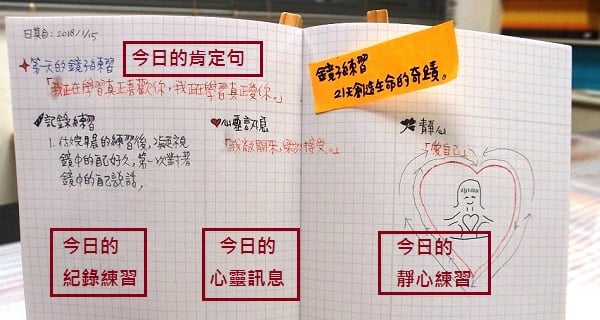 日期:2018/1/15
第一天的鏡子練習
今日的肯定句
「我正在學習真正喜歡你,我正在學習真正愛你。」
鏡子練習
21天創造生命的奇蹟。
記錄練習
1. 做完早晨的練習後,凝視
鏡中的自己好久,第一次對著
鏡中的自己說話,
心靈訊息
「我敞開來,樂於接受。」
靜心
「愛自己」
今日的
紀錄練習
今日的
心靈訊息
今日的
靜心練習